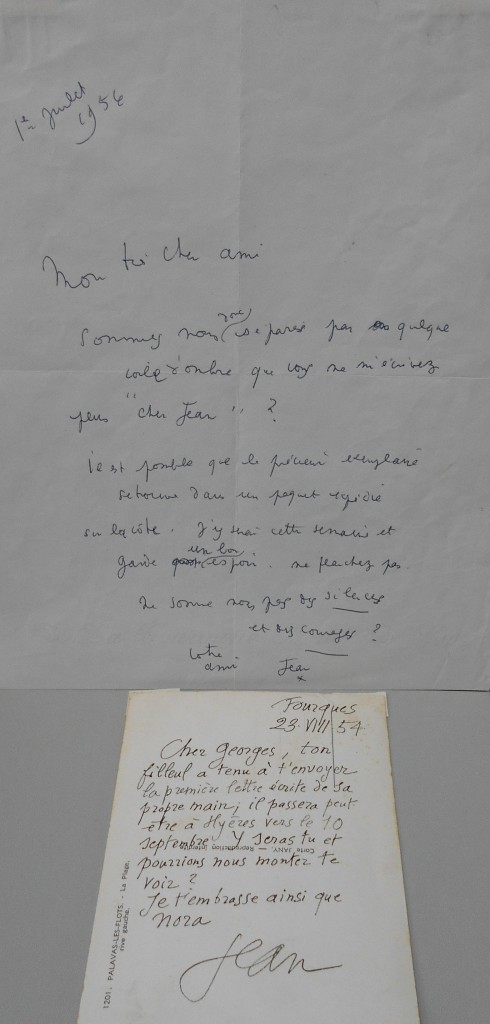 1er Juillet
1954
Mon très cher ami
Sommes nous séparés par quelque
d'ombre que vous ne m'écrivez
plus "cher Jean" ?
Il est possible que le précieux exemplaire
se trouve dans un paquet expédié
sur la côte. J'y serai cette semaine et
garde un bon espoir. ne pas
Ne sommes nous pas des silences
et des courages ?
votre
ami Jean
Fourques
23.VIII 54
Cher Georges, ton
filleul a tenu à t'envoyer
la première lettre écrite de sa
propre main; il passera peut
être à Hyères vers le 10
septembre. Y seras tu et
pourrions nous monter te
voir ?
Je t'embrasse ainsi que
Nora
Jean
Carte JANY. — Reproduction interdite
1201. PALAVAS-LES-FLOTS. - La Plage,
rive gauche.